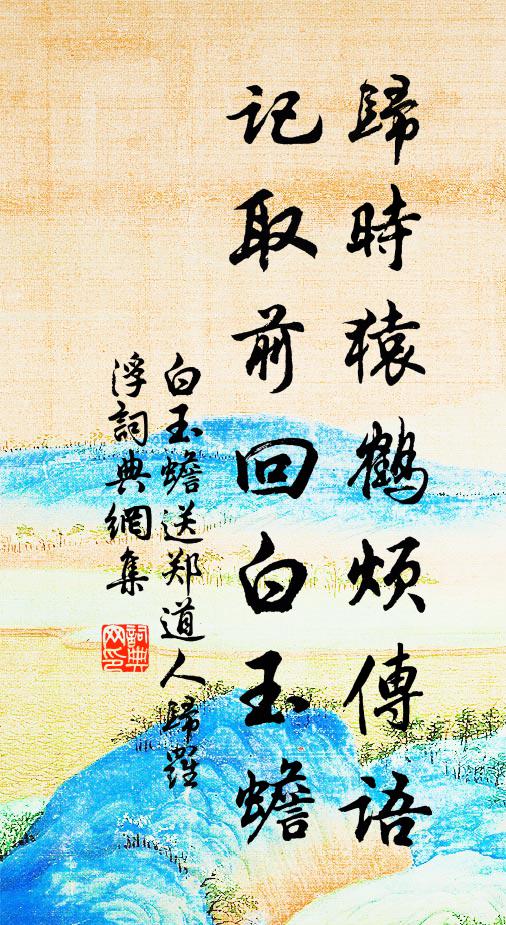 歸時猿鶴煩傳語
记取前回白玉蟾
白玉蟾送郑道人歸羅
浮詞典網集
詞典
网印